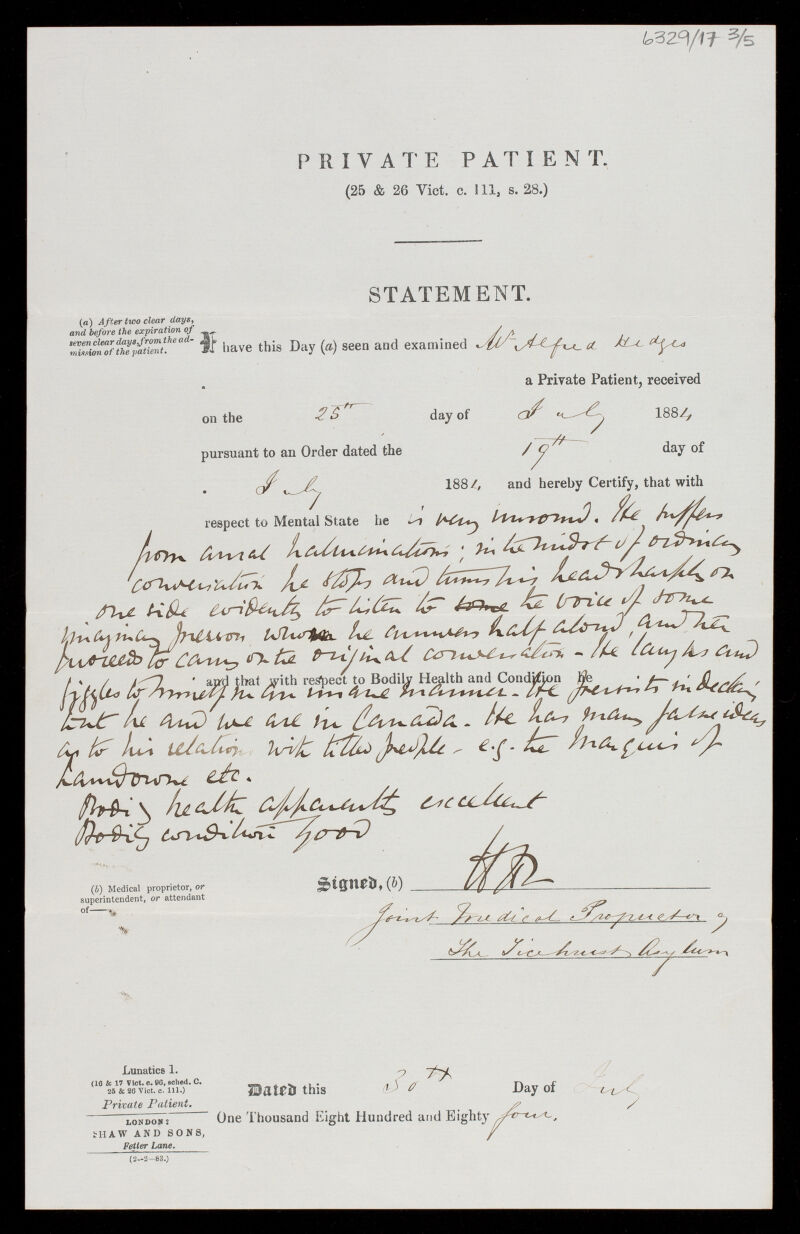 6329/17 3/5
PRIVATE PATIENT.
(25 & 26 Vict. c. 111, s. 28.)
STATEMENT.
(a) After two clear days,
and before the expiration of
seven clear days, from the ad-
mission of the patient.
I have this Day (a) seen and examined Mr Alfred Hedges
a Private Patient, received
on the 25th day of July 1884,
pursuant to an Order dated the 19th day of
July 1884, and hereby Certify, that with
respect to Mental State he is very unsound. He suffers
from aural hallucinations; in the midst of ordinary
conversation he stops and turns his head sharply on
one side evidently to listen to some the voice of some
imaginary person whom he answers half aloud, and then
proceeds to carry on the original conversation - He laughs and
and that with respect to Bodily Health and Condition he
giggles to himself in an insane manner - He persists in declaring
that he and we are in Canada. He has many false ideas
as to his relation with titled people - e.g. the Marquis of
Lansdowne etc.
Bodily health apparently excellent
Bodily condition good
(b) Medical proprietor, or
superintendent, or attendant
of—.
Signed, (b)
Joint Medical Proprietor of
The Ticehurst Asylum
Lunatics 1.
(16 & 17 Vict. c. 96, sched. C.
25 & 26 Vict. c. 111.)
Private Patient.
LONDON:
SHAW AND SONS,
Fetter Lane.
(2--2-83.)
Dated this 30th Day of July
One Thousand Eight Hundred and Eighty four.